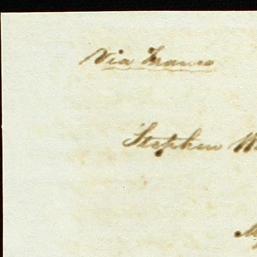 Via France
Stephen W
My